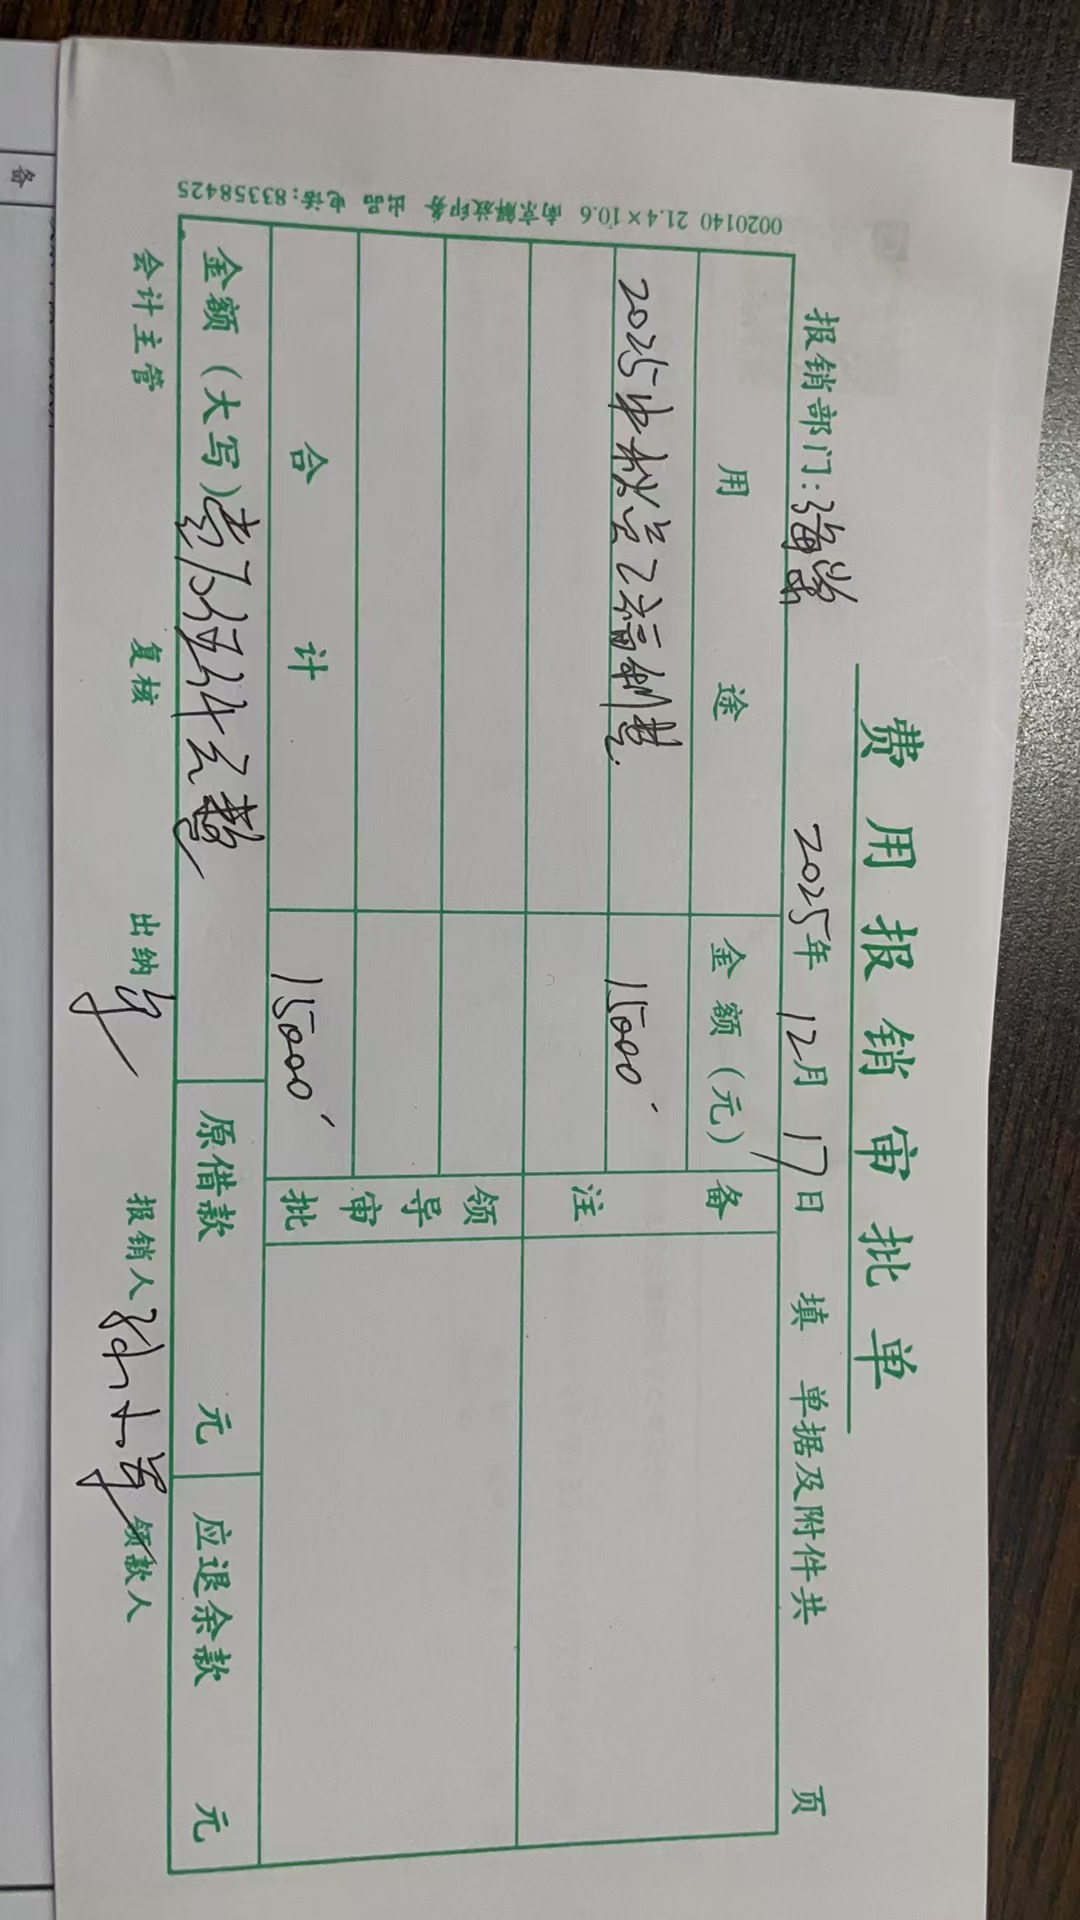 费用报销审批单
报销部门: 2025年 12月 17日 填 单据及附件共 页
用途 金额（元） 备注
2025中秋员工福利费 15000
领导审批
合计 15000
金额（大写）壹万伍仟元整 原借款 元 应退余款 元
会计主管 复核 出纳 报销人 领款人
0020140 21.4×10.6 南京解放印务 出品 电话:83358425
备